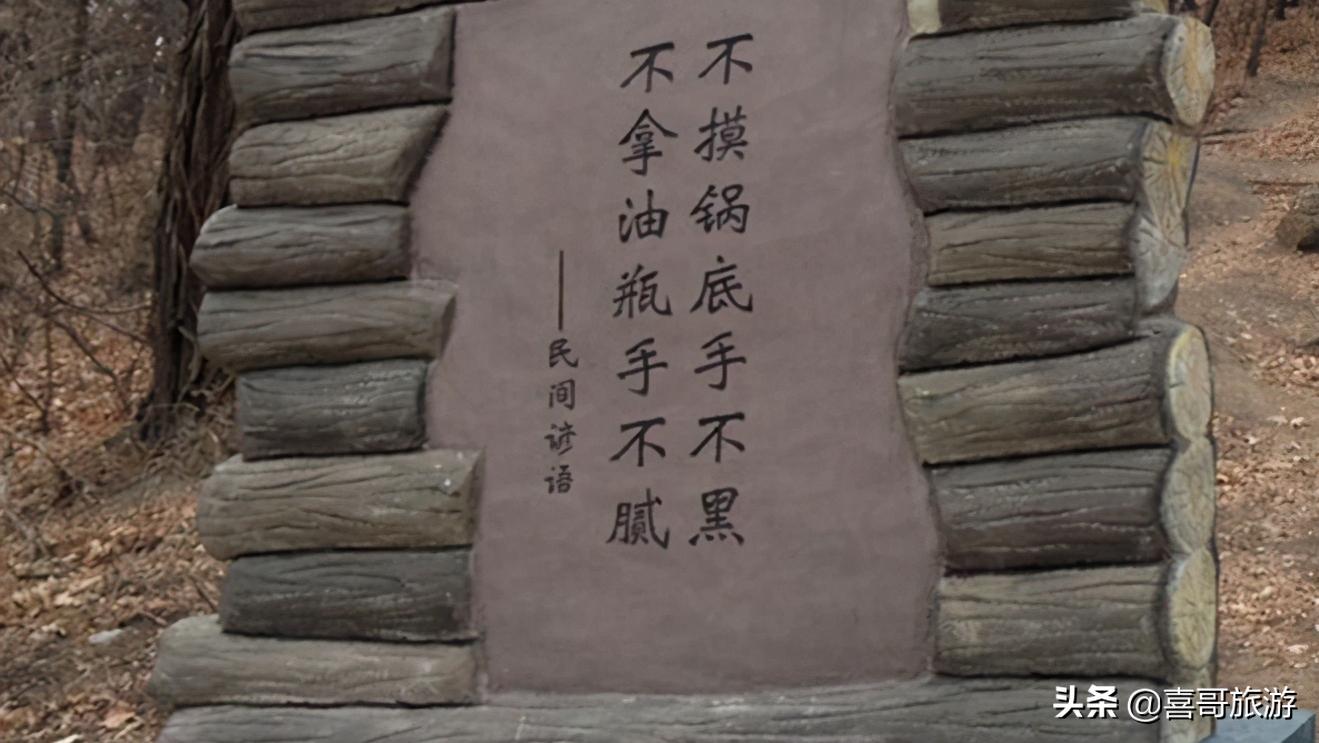 不摸锅底手不黑
不拿油瓶手不腻
——民间谚语
头条 @喜哥旅游